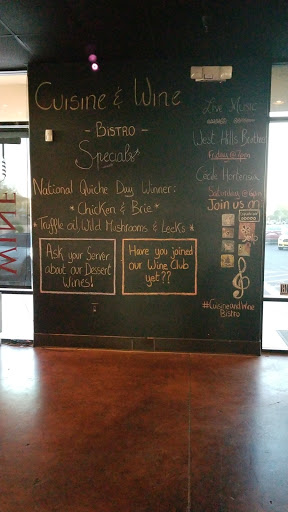 Cuisine & Wine
- Bistro -
Specials*
National Quiche Day Winner:
* Chicken & Brie *
*Truffle oil, Wild Mushrooms & Leeks *
Ask your Server
about our Dessert
Wines!
Have you joined
our Wine Club
yet??
Live Music
West Hills Brothers
Friday @
Saturday @
Join us
#CuisineandWine
Bistro
WINE